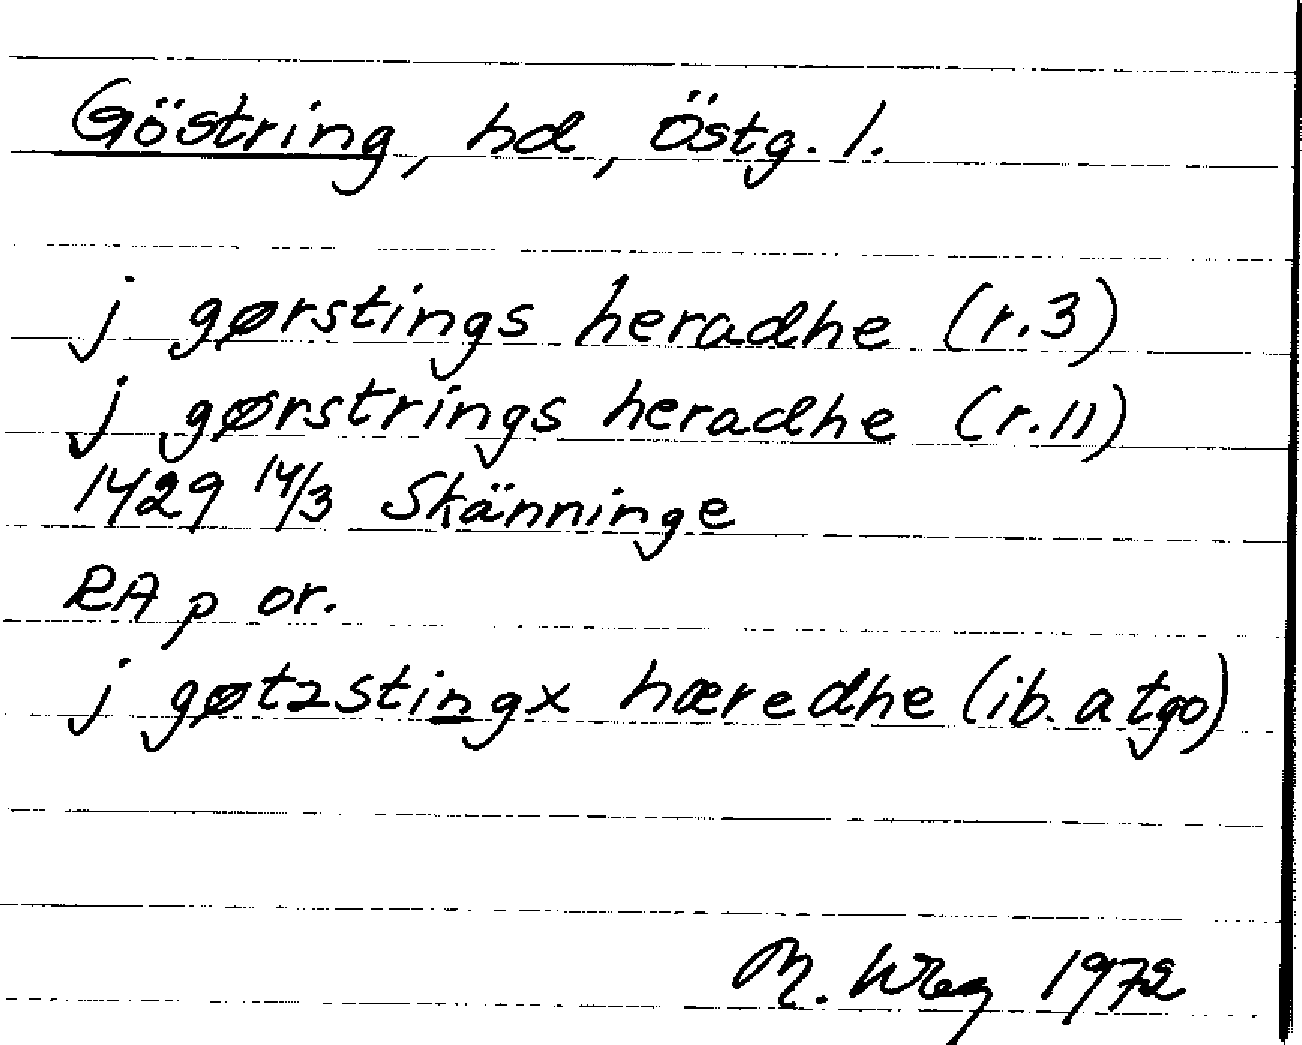 Göstring, hd, Östg. l.
j gørstings heradhe (r.3)
j gørstrings heradhe (r.11)
1429 14/3 Skänninge
RA p or.
j gøtzstingx hæredhe (ib. a tgo)
M. 1972